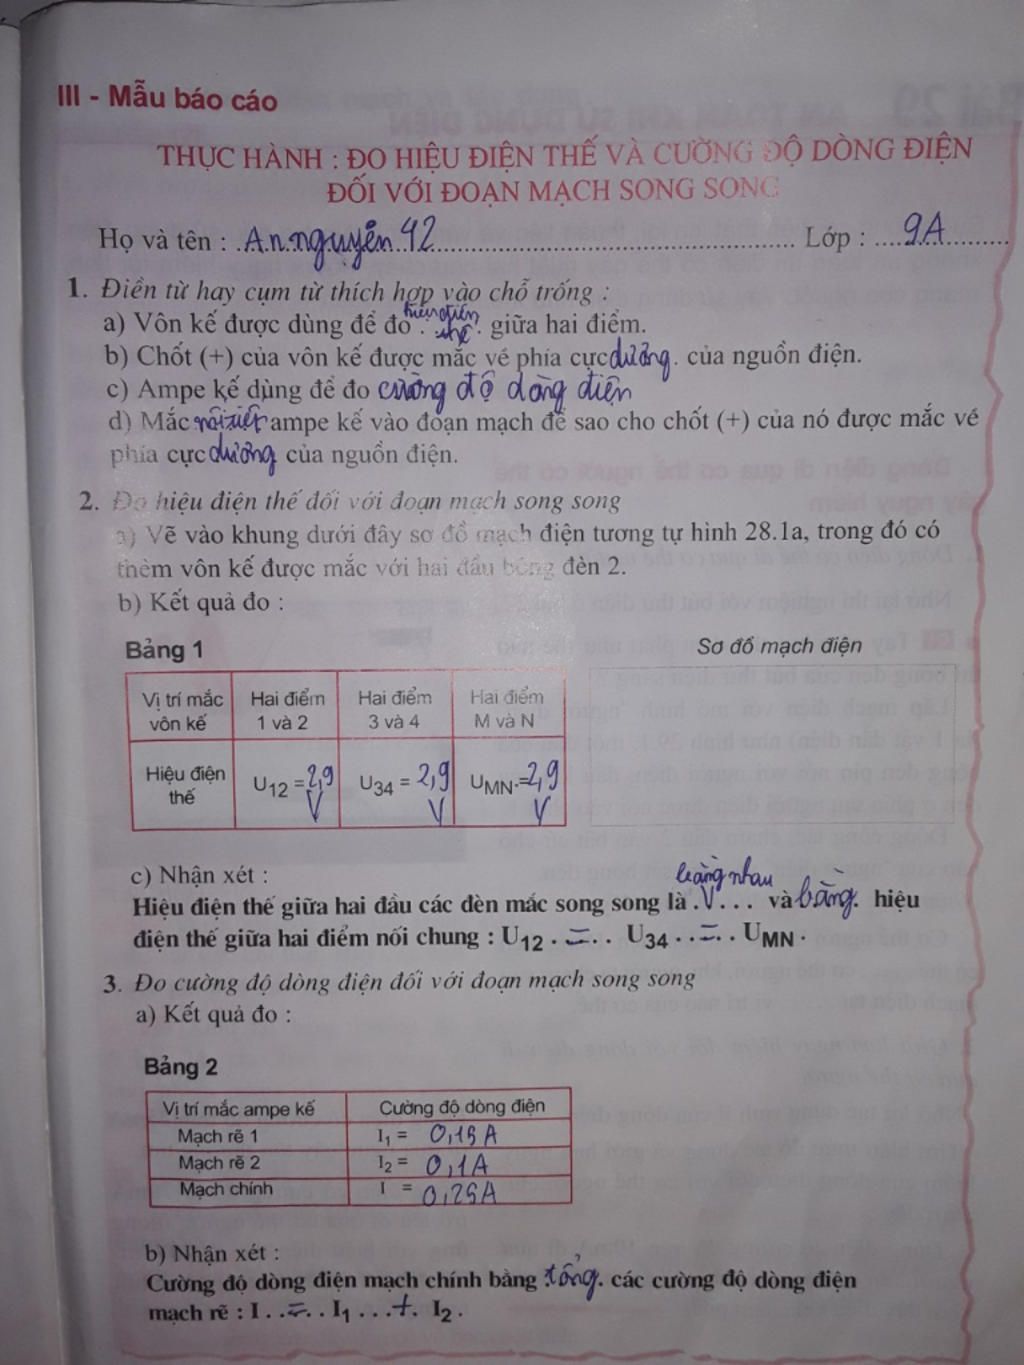 III - Mẫu báo cáo
THỰC HÀNH : ĐO HIỆU ĐIỆN THẾ VÀ CƯỜNG ĐỘ DÒNG ĐIỆN
ĐỐI VỚI ĐOẠN MẠCH SONG SONG
Họ và tên : An nguyễn 42 Lớp : 9A
1. Điền từ hay cụm từ thích hợp vào chỗ trống :
a) Vôn kế được dùng để đo hiệu điện thế giữa hai điểm.
b) Chốt (+) của vôn kế được mắc về phía cực dương. của nguồn điện.
c) Ampe kế dùng để đo cường độ dòng điện
d) Mắc nối tiếp ampe kế vào đoạn mạch để sao cho chốt (+) của nó được mắc về
phía cực dương của nguồn điện.
2. Đo hiệu điện thế đối với đoạn mạch song song
a) Vẽ vào khung dưới đây sơ đồ mạch điện tương tự hình 28.1a, trong đó có
thêm vôn kế được mắc với hai đầu bóng đèn 2.
b) Kết quả đo :
Bảng 1
Sơ đồ mạch điện
Vị trí mắc vôn kế Hai điểm 1 và 2 Hai điểm 3 và 4 Hai điểm M và N
Hiệu điện thế U12 = 2,9 V U34 = 2,9 V UMN = 2,9 V
c) Nhận xét :
Hiệu điện thế giữa hai đầu các đèn mắc song song là bằng nhau và bằng. hiệu
điện thế giữa hai điểm nối chung : U12 = U34 = UMN .
3. Đo cường độ dòng điện đối với đoạn mạch song song
a) Kết quả đo :
Bảng 2
Vị trí mắc ampe kế Cường độ dòng điện
Mạch rẽ 1 I1 = 0,15A
Mạch rẽ 2 I2 = 0,1A
Mạch chính I = 0,25A
b) Nhận xét :
Cường độ dòng điện mạch chính bằng tổng. các cường độ dòng điện
mạch rẽ : I = I1 + I2 .